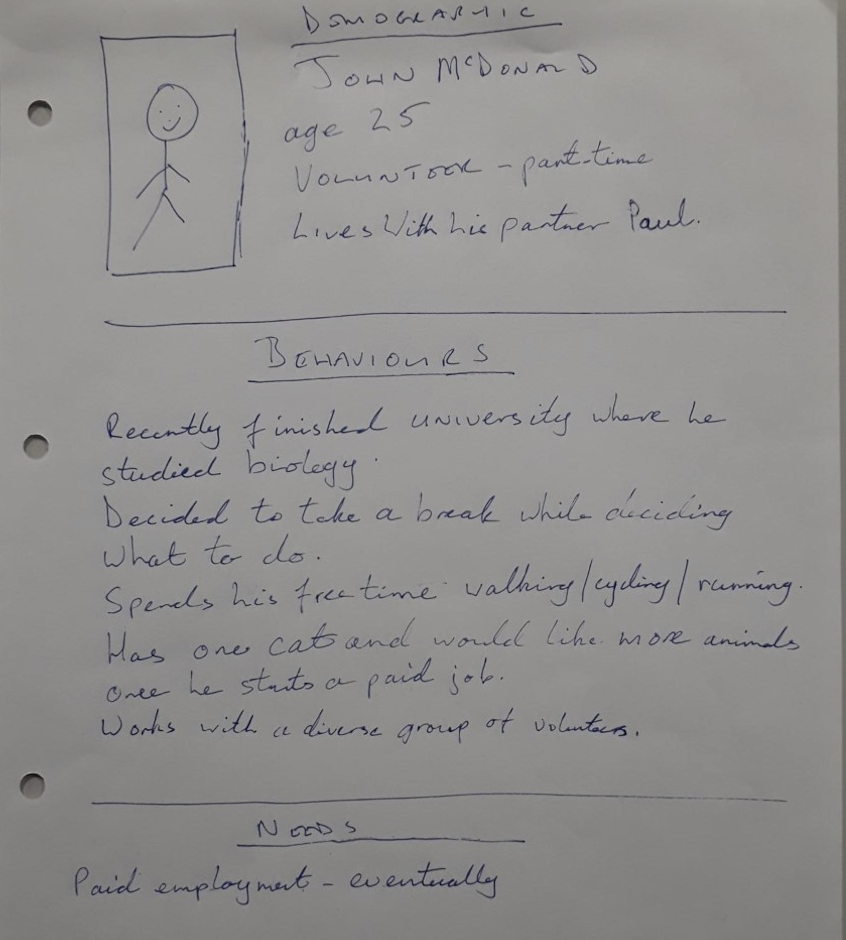 DEMOGRAPHIC
JOHN McDONALD
age 25
VOLUNTEER - part-time
Lives With his partner Paul.
BEHAVIOURS
Recently finished university where he
studied biology.
Decided to take a break while deciding
what to do.
Spends his free time walking/cycling/running.
Has one cat and would like more animals
once he starts a paid job.
Works with a diverse group of volunteers.
NEEDS
Paid employment - eventually